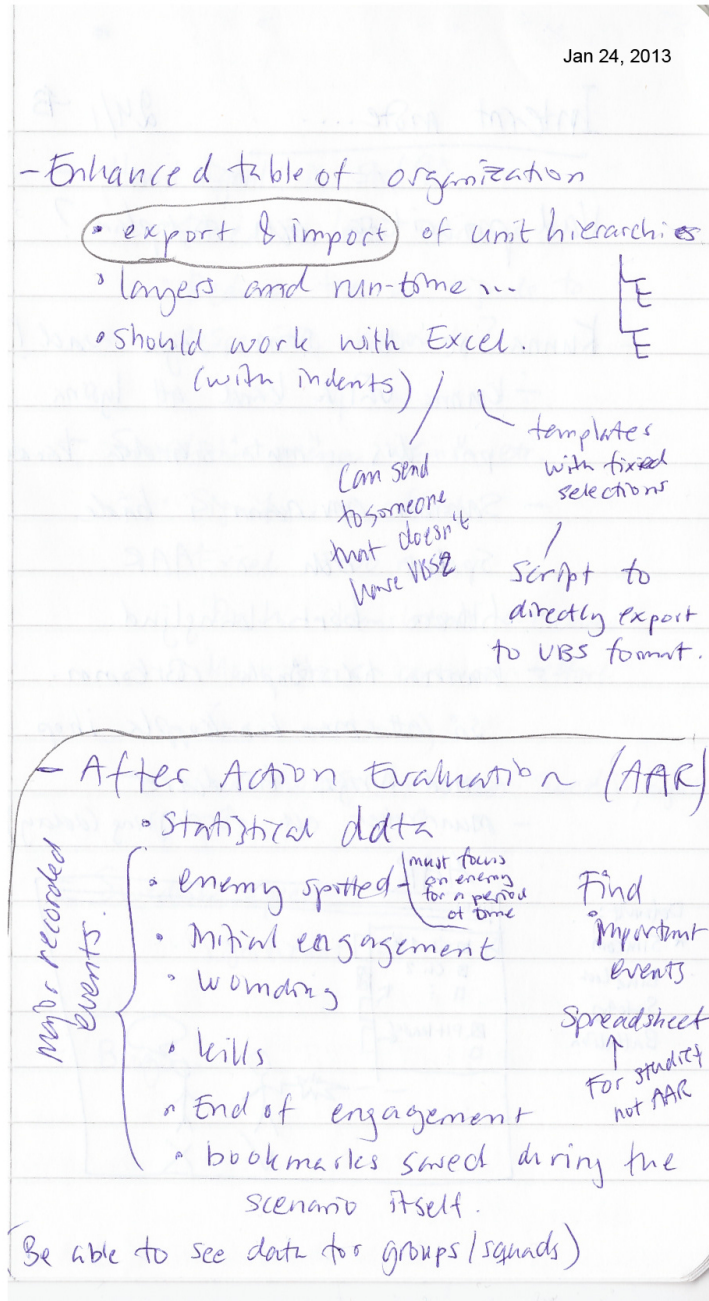 Jan 24, 2013
- Enhanced table of organization
• export & import of unit hierarchies
E
• layers and run-time ...
• should work with Excel
E
(with indents)
Can send
to someone
that doesn't
have VBS2
templates
with fixed
selections
Script to
directly export
to VBS format.
- After Action Evaluation (AAR)
• Statistical data
major recorded
events.
• enemy spotted
must focus
on enemy
for a period
of time
• Initial engagement
• wounding
• kills
• End of engagement
• bookmarks saved during the
scenario itself.
Find
important
events
Spreadsheet
For studies
not AAR
(Be able to see data for groups/squads)